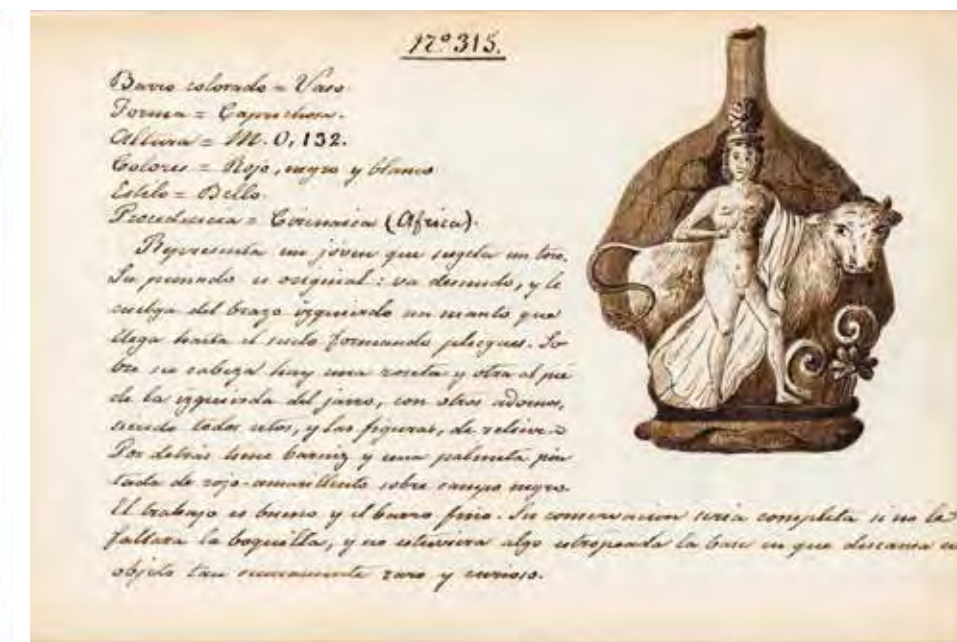 Nº 315.
Barro colorado = Vaso.
Forma = Caprichosa.
Altura = M. 0,132.
Colores = Rojo, negro y blanco
Estilo = Bello.
Procedencia = Cirenaica (Africa).
Representa un joven que sugeta un toro.
Su peinado es original: va desnudo, y le
cuelga del brazo izquierdo un manto que
llega hasta el suelo formando pliegues. So
bre su cabeza hay una roseta y otra al pie
de la izquierda del jarro, con otros adornos,
siendo todos estos, y las figuras, de relieve.
Por detrás tiene barniz y una palmeta pin
tada de rojo-amarillento sobre campo negro.
El trabajo es bueno y el barro fino. Su conservacion seria completa si no le
faltara la boquilla, y no estuviera algo estropeada la base en que descansa
objeto tan sumamente raro y curioso.